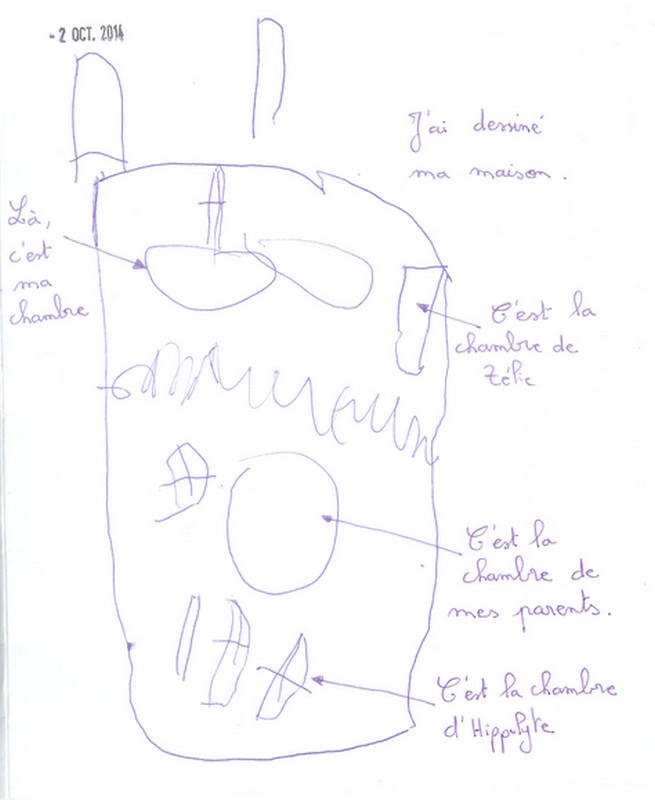 - 2 OCT. 2014
J'ai dessiné
ma maison.
Là,
c'est
ma
chambre
C'est la
chambre de
Zélie
C'est la
chambre de
mes parents.
C'est la chambre
d'Hippolyte